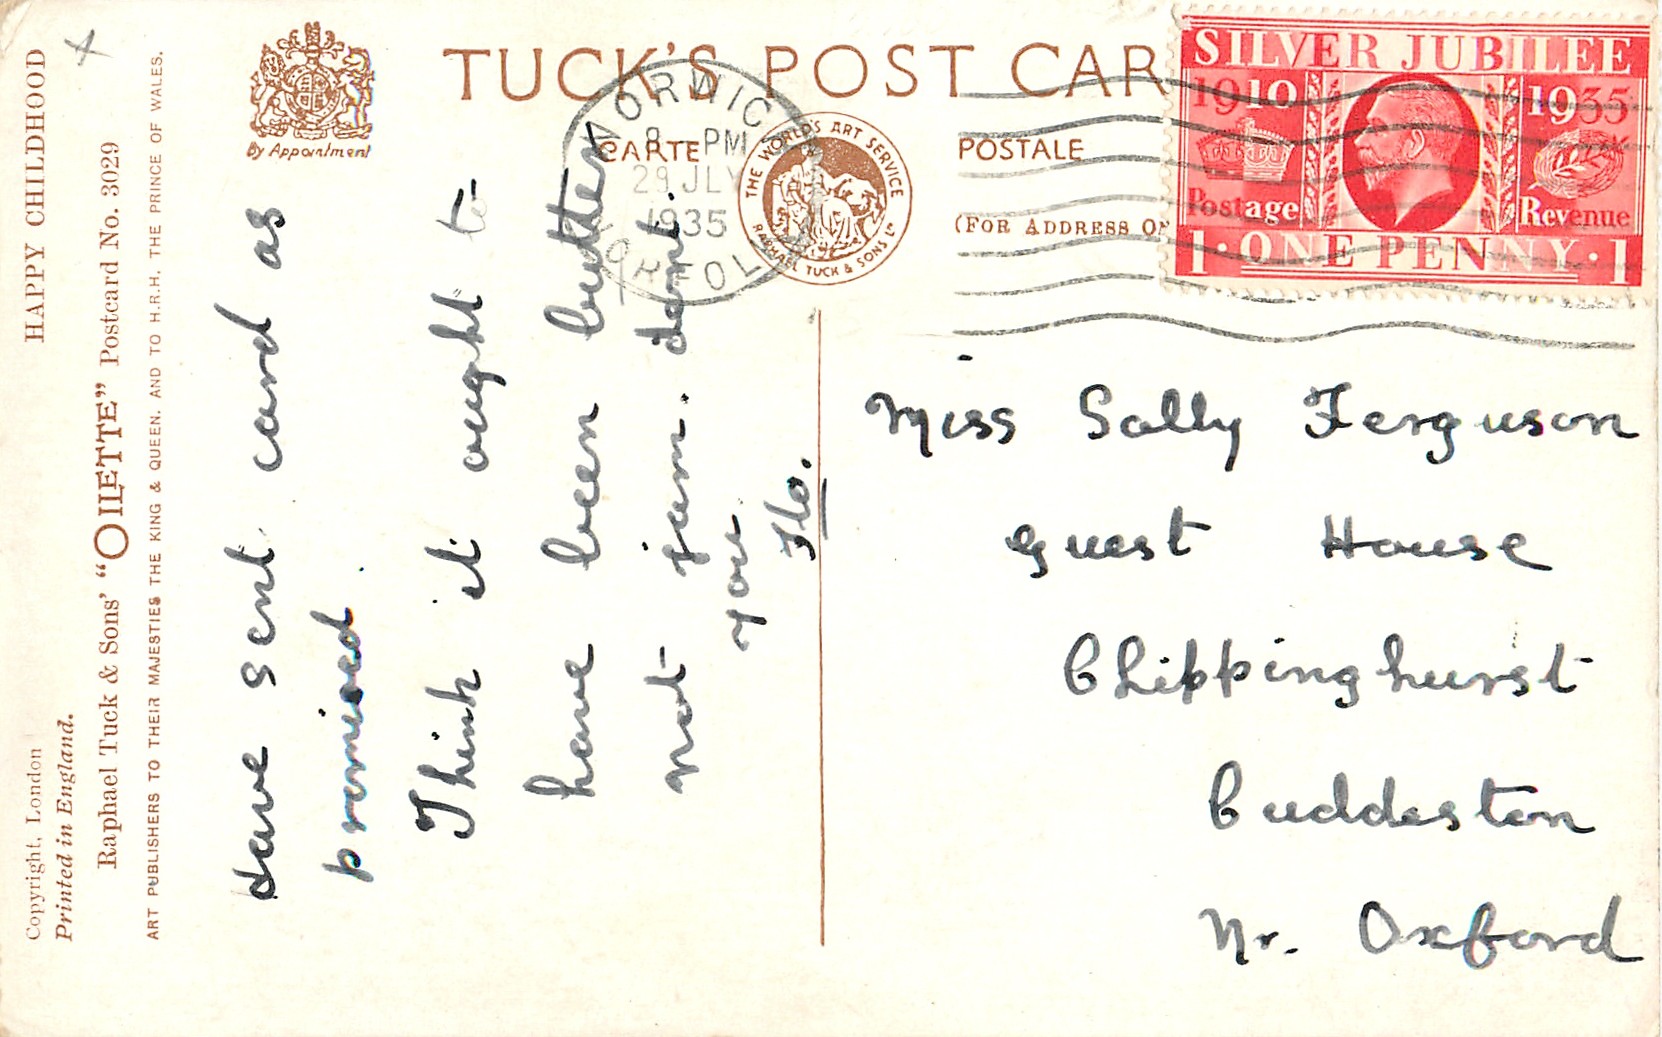 HAPPY CHILDHOOD
Copyright, London
Printed in England.
Raphael Tuck & Sons' "OILETTE" Postcard No. 3029
ART PUBLISHERS TO THEIR MAJESTIES THE KING & QUEEN, AND TO H.R.H. THE PRINCE OF WALES.
By Appointment
TUCK'S POST CAR
CARTE POSTALE
(FOR ADDRESS ON
THE WORLD'S ART SERVICE
RAPHAEL TUCK & SONS LD
NORWICH
8 PM
29 JLY
1935
NORFOLK
SILVER JUBILEE
1910 1935
Postage Revenue
1·ONE PENNY·1
Have sent card as
promised.
Think it ought to
have been butter
not jam. dont
you
Flo.
Miss Sally Ferguson
Guest House
Chippinghurst
Cuddeston
Nr. Oxford